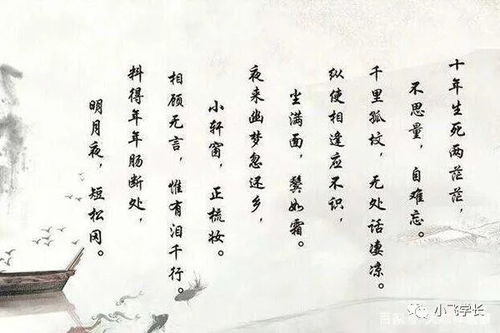 十年生死两茫茫，
不思量，自难忘。
千里孤坟，无处话凄凉。
纵使相逢应不识，
尘满面，鬓如霜。
夜来幽梦忽还乡，
小轩窗，正梳妆。
相顾无言，惟有泪千行。
料得年年肠断处，
明月夜，短松冈。
小飞学长